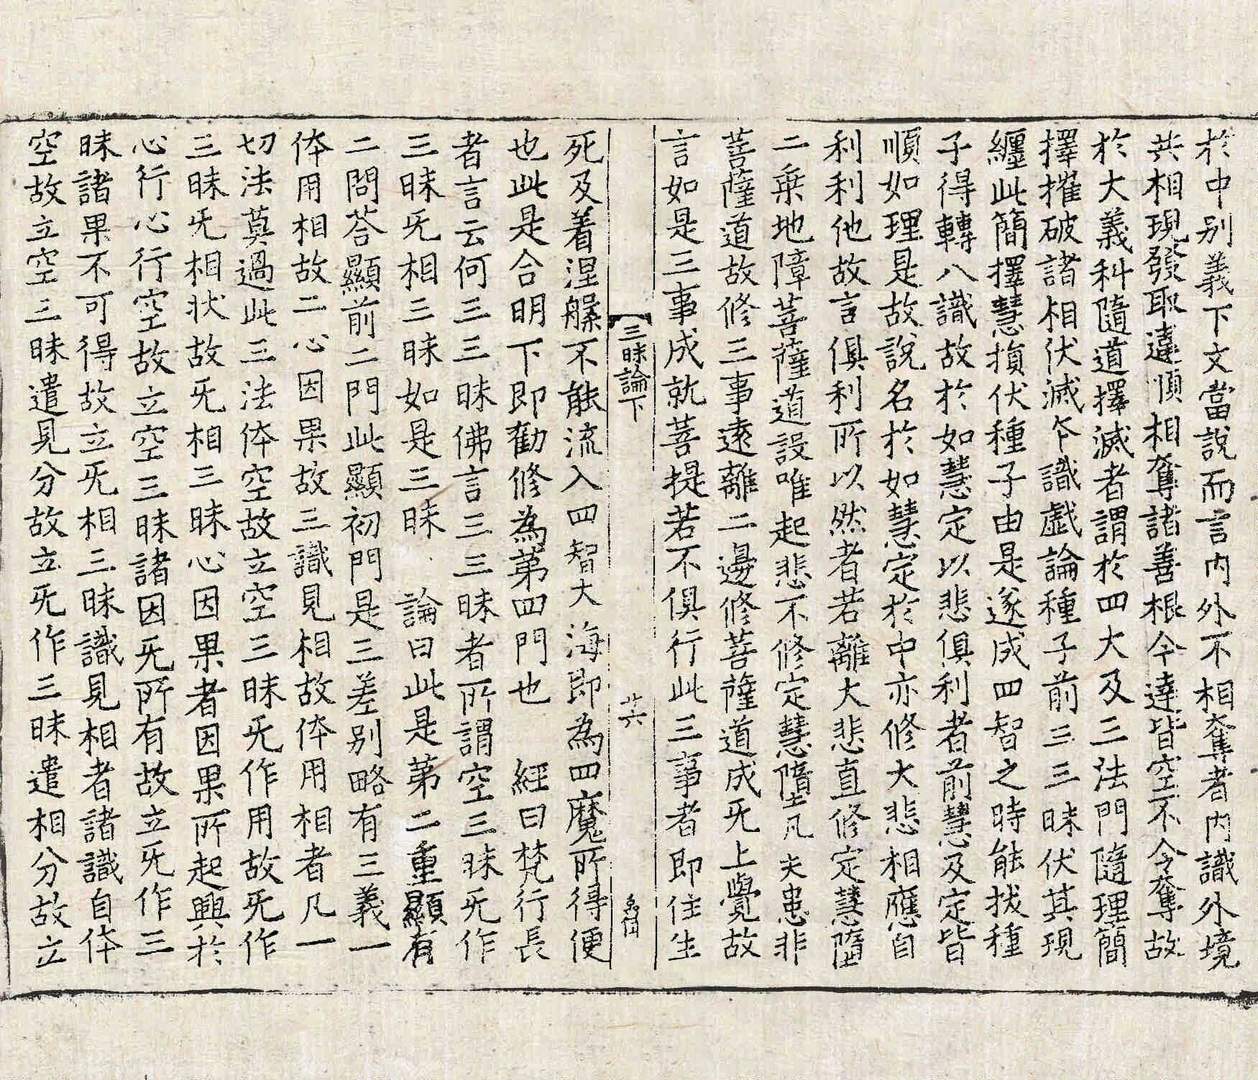 於中別義下文當說而言內外不相奪者內識外境
共相現發取違順相奪諸善根今達皆空不令奪故
於大義科隨道擇滅者謂於四大及三法門隨理簡
擇摧破諸相伏滅夲識戱論種子前三三昧伏其現
纏此簡擇慧損伏種子由是遂成四智之時能拔種
子得轉八識故於如慧定以悲俱利者前慧及定皆
順如理是故說名於如慧定於中亦修大悲相應自
利利他故言俱利所以然者若離大悲直修定慧墮
二乗地障菩薩道設唯起悲不修定慧墮凡夫患非
菩薩道故修三事遠離二邊修菩薩道成旡上覺故
言如是三事成就菩提若不俱行此三事者即住生
三昧論下 廿六
死及着涅槃不能流入四智大海即為四魔所得便
也此是合明下即勸修為苐四門也 經曰梵行長
者言云何三三昧佛言三三昧者所謂空三昧旡作
三昧旡相三昧如是三昧 論曰此是第二重顯有
二問荅顯前二門此顯初門是三差別略有三義一
体用相故二心因果故三識見相故体用相者凡一
切法莫過此三法体空故立空三昧旡作用故旡作
三昧旡相狀故旡相三昧心因果者因果所起興於
心行心行空故立空三昧諸因旡所有故立旡作三
昧諸果不可得故立旡相三昧識見相者諸識自体
空故立空三昧遣見分故立旡作三昧遣相分故立